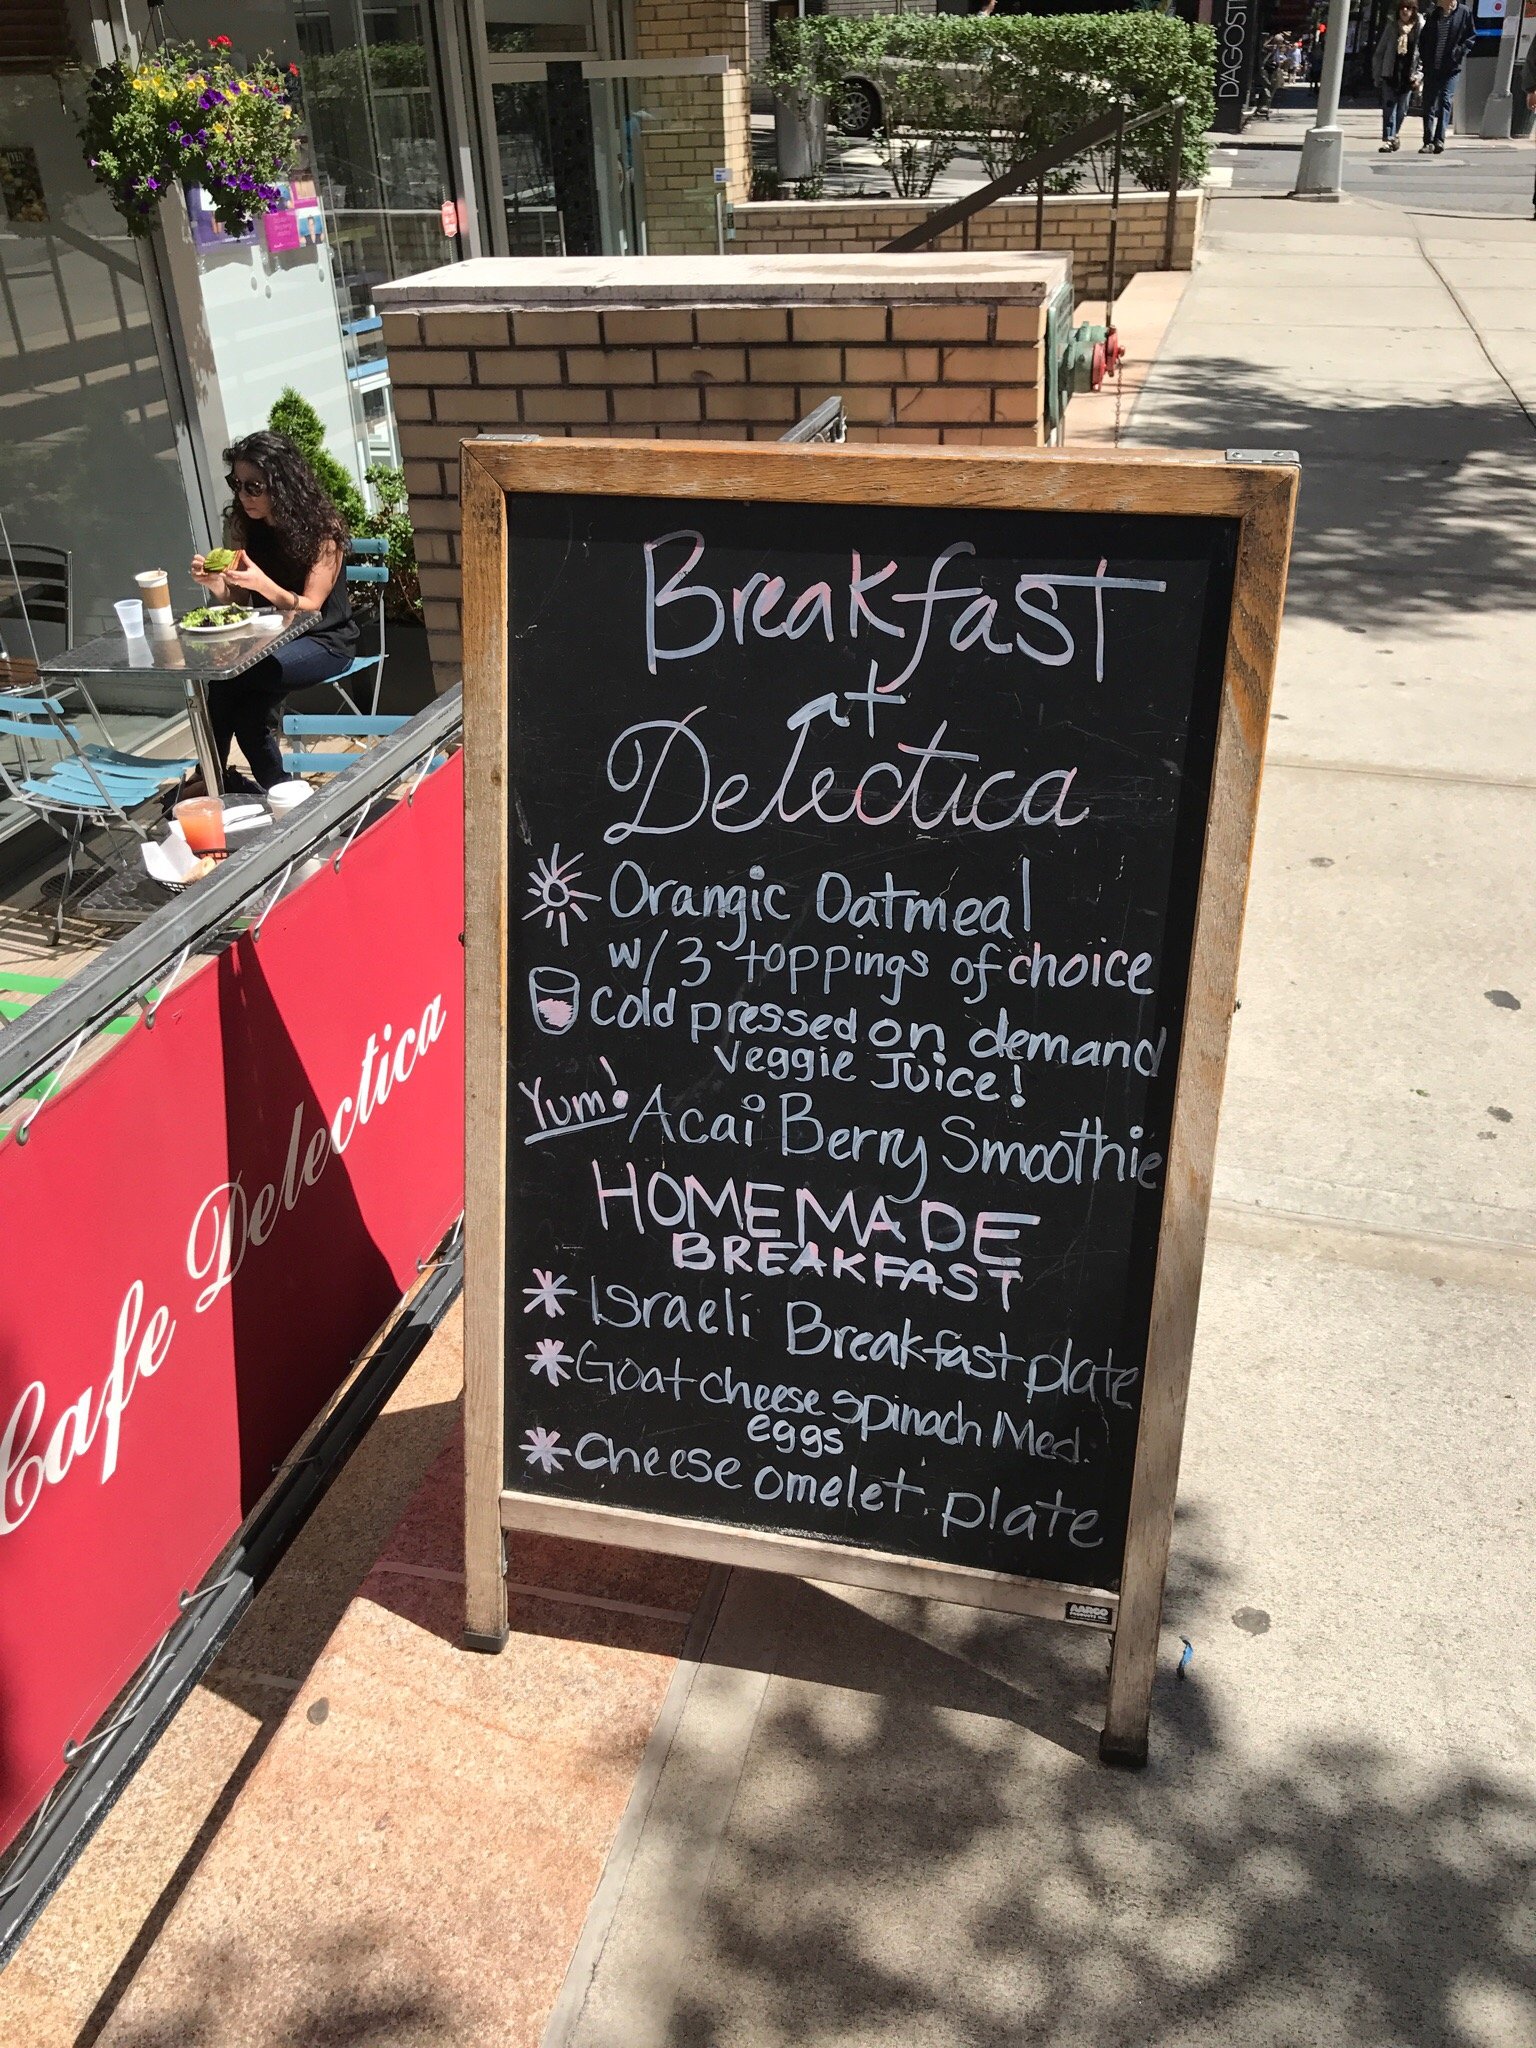 DAGOSTI
Breakfast
at
Delectica
Orangic Oatmeal
w/3 toppings of choice
Cold pressed on demand
veggie Juice!
Yum! Acai Berry Smoothie
HOMEMADE
BREAKFAST
Israeli Breakfast plate
Goat cheese spinach Med.
eggs
Cheese omelet plate
Cafe Delectica